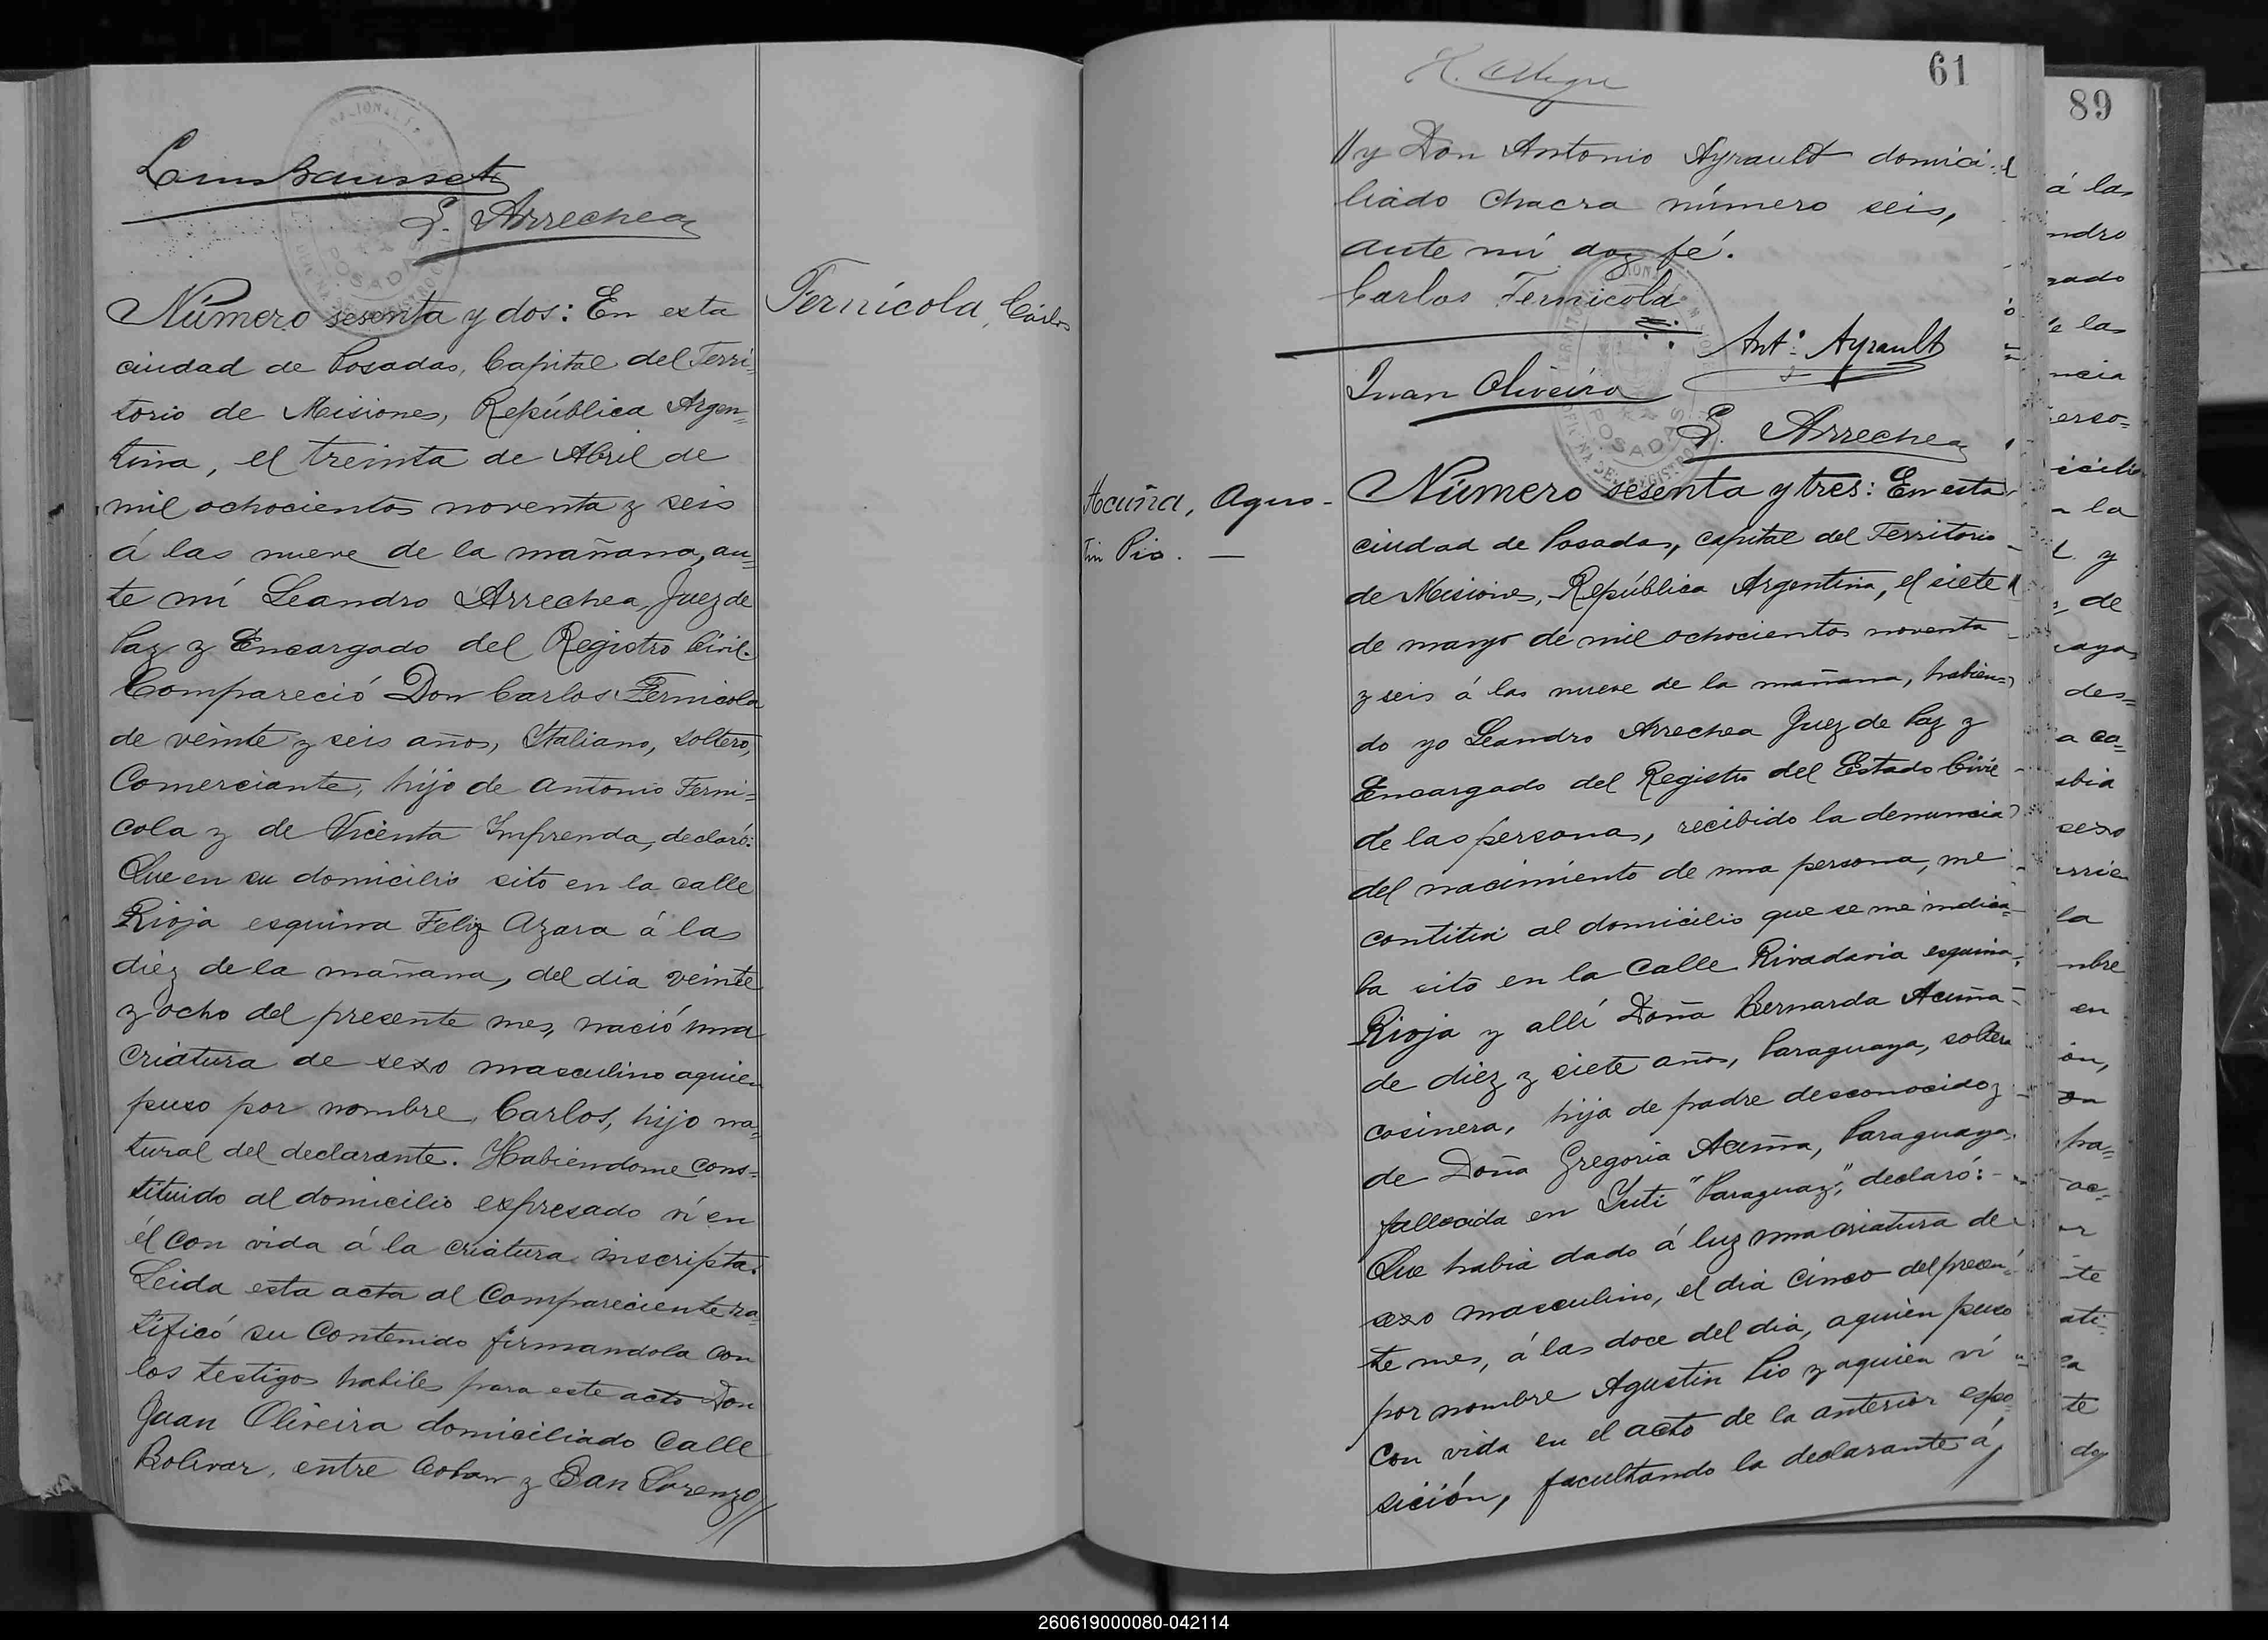 L. Arrechea
Número sesenta y dos: En esta
ciudad de Posadas, Capital del Terri=
torio de Misiones, República Argen=
tina, el treinta de Abril de
mil ochocientos noventa y seis
á las nueve de la mañana, an=
te mí Leandro Arrechea, Juez de
Paz y Encargado del Registro Civil.
Compareció Don Carlos Fernicola
de veinte y seis años, Italiano, soltero,
Comerciante, hijo de Antonio Ferni=
cola y de Vicenta Imprenda, declaró:
Que en su domicilio sito en la calle
Rioja esquina Feliz Azara á las
diez de la mañana, del dia veinte
y ocho del presente mes, nació una
criatura de sexo masculino aquien
puso por nombre Carlos, hijo na=
tural del declarante. Habiendome cons=
tituido al domicilio expresado ví en
él con vida á la criatura inscripta.
Leida esta acta al Compareciente ra=
tificó su contenido firmandola con
los testigos habiles para este acto Don
Juan Oliveira domiciliado Calle
Bolivar, entre Colon y San Lorenzo//
Fernícola, Cárlos
POSADAS
61
//y Don Antonio Ayrault domici=
liado chacra número seis,
ante mí doy fé.
Carlos Fernicola
Ant.º Ayrault
Juan Oliveira
L. Arrechea
POSADAS
Acuña, Agus-
tin Pio. —
Número sesenta y tres: En esta
ciudad de Posadas, capital del Territorio
de Misiones, República Argentina, el siete
de mayo de mil ochocientos noventa
y seis á las nueve de la mañana, habien=
do yo Leandro Arrechea Juez de Paz y
Encargado del Registro del Estado Civil
de las personas, recibido la denuncia
del nacimiento de una persona, me
contitui al domicilio que se me indica=
ba sito en la Calle Rivadavia esquina
Rioja y allí Doña Bernarda Acuña
de diez y siete años, Paraguaya, soltera
cosinera, hija de padre desconocido y
de Doña Gregoria Acuña, Paraguaya,
fallecida en Yuti "Paraguay", declaró:
Que habia dado á luz una criatura de
sexo masculino, el dia cinco del presen=
te mes, á las doce del dia, aquien puso
por nombre Agustin Pio y aquien ví
con vida en el acto de la anterior espo=
sición, facultando la declarante á
89
á las
ndro
gado
de las
ncia
erso=
icilio
a la
y
de
aya,
des=
a co=
abia
sexo
la
mbre
en
on,
ha=
ac=
te
ati=
te
doy
260619000080-042114